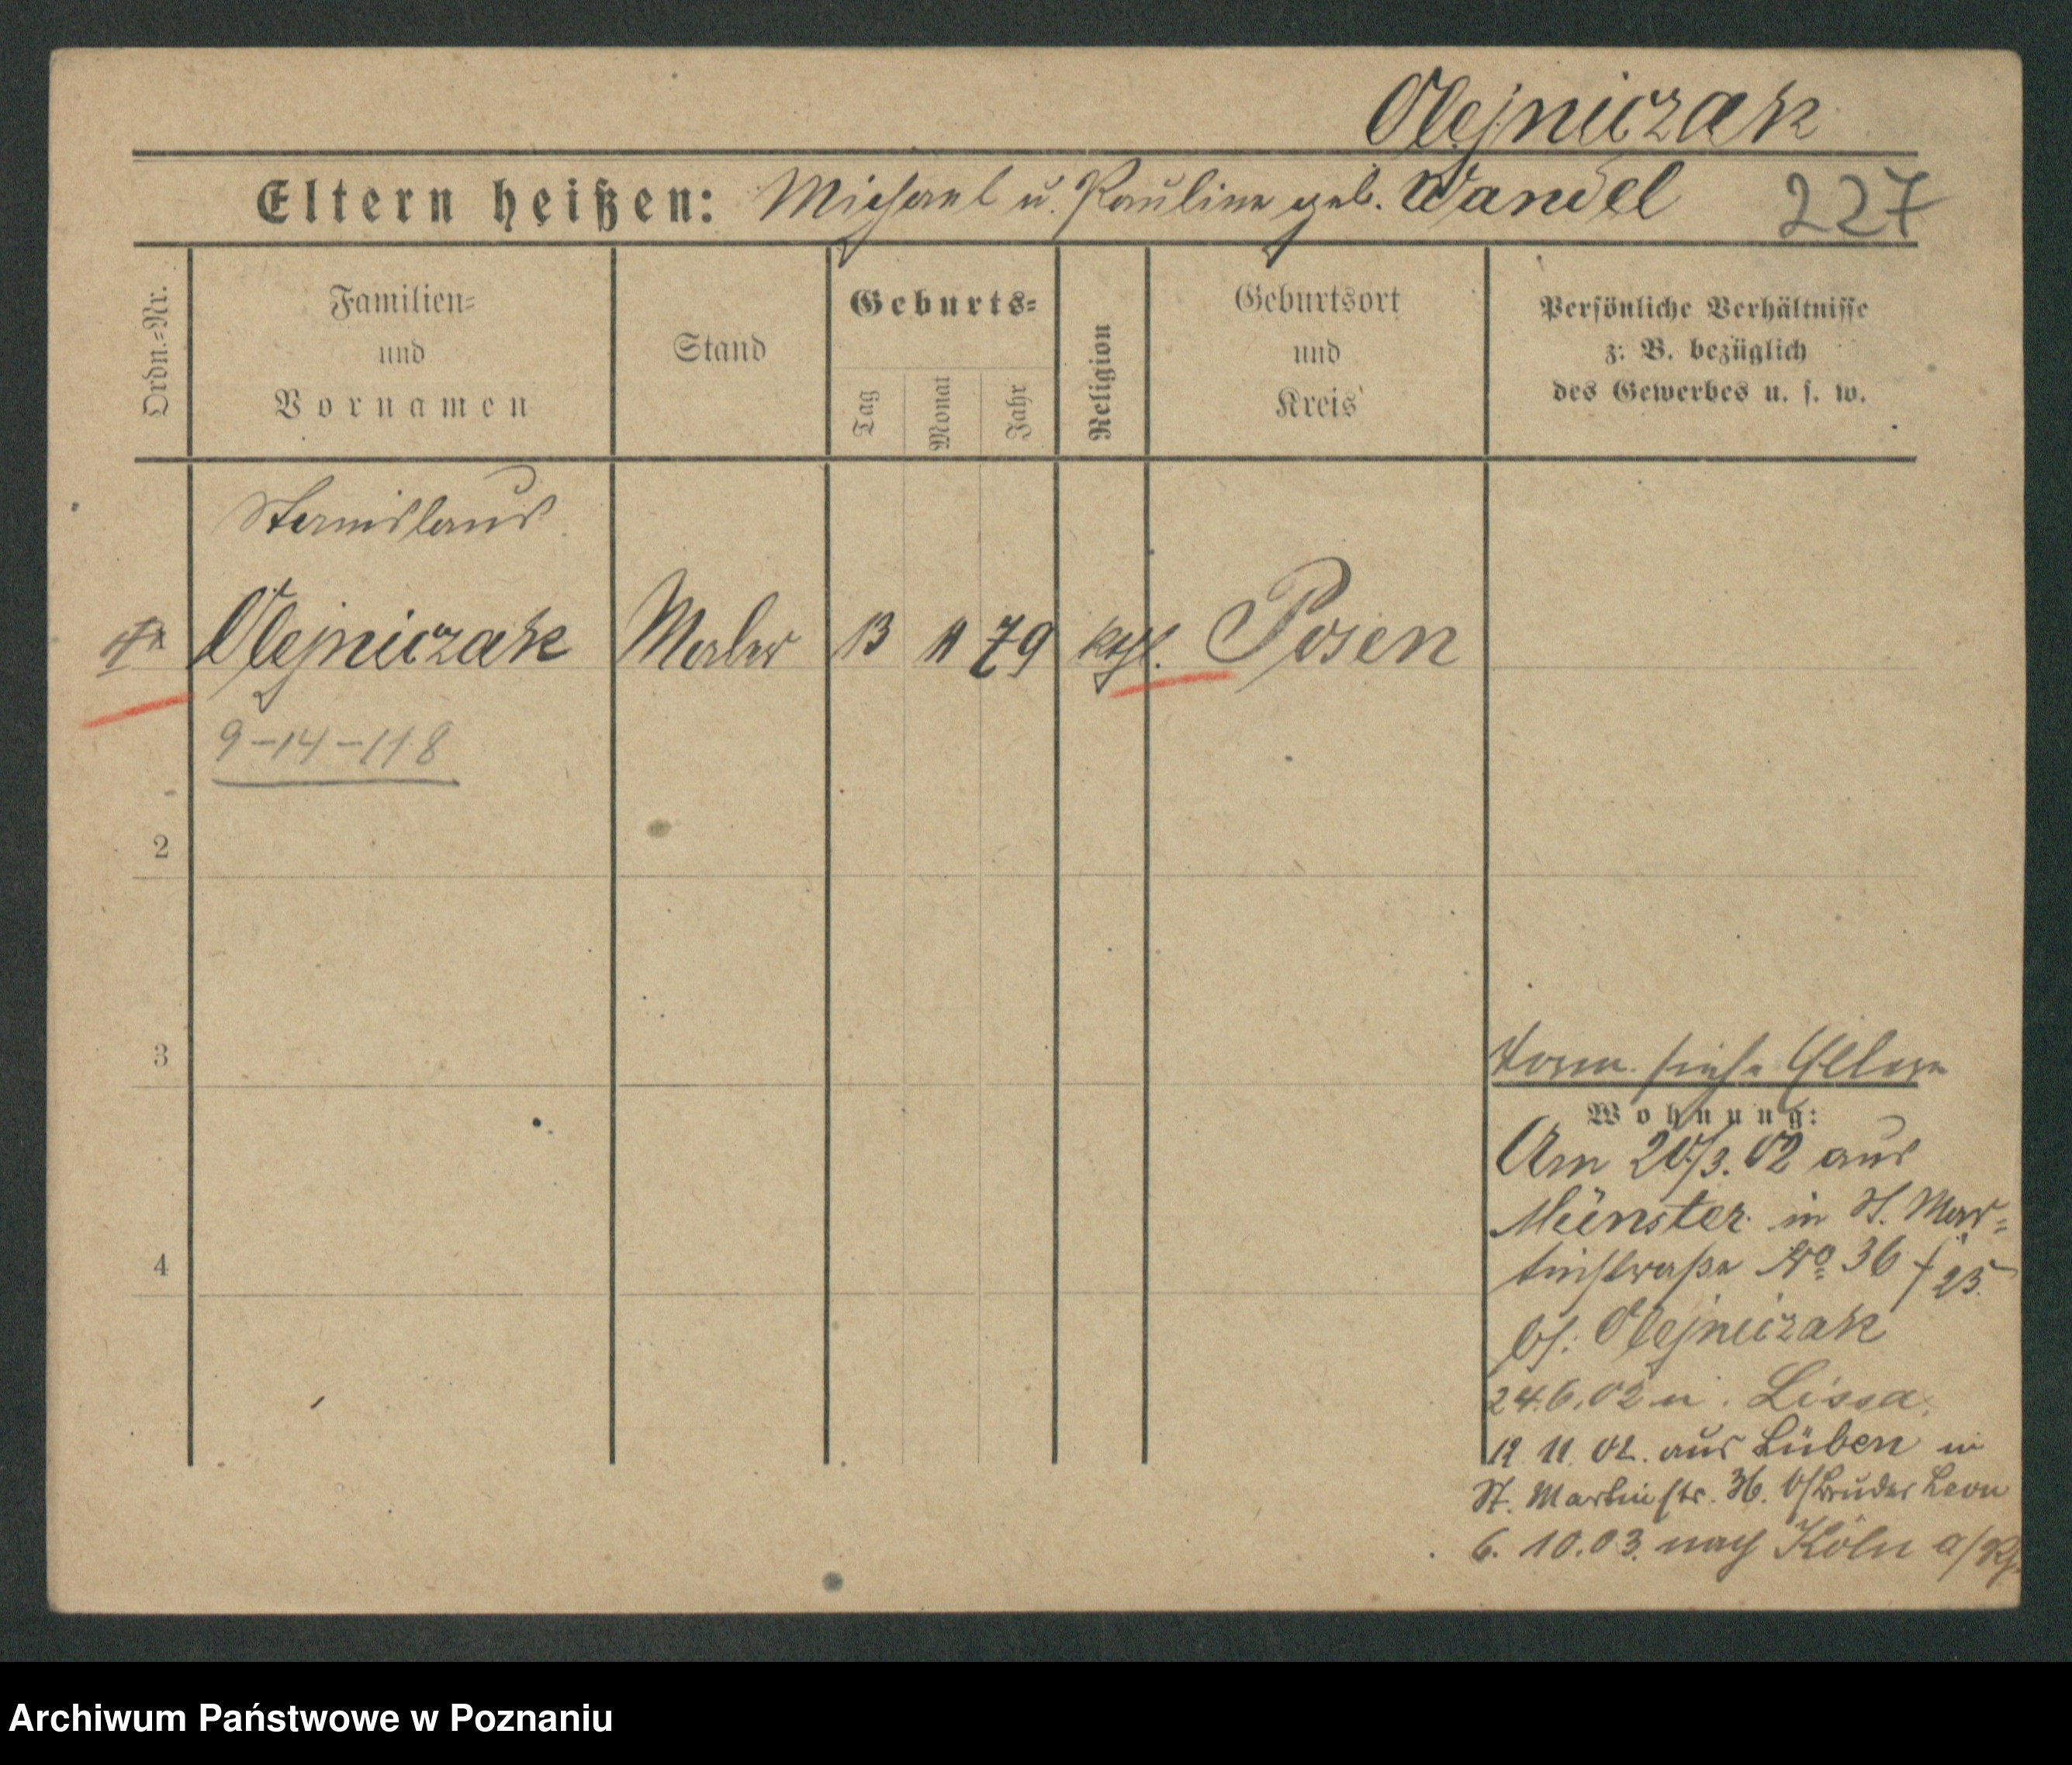 Olejniczak
Eltern heißen: Michael u. Pauline geb. Wandel 227
Ordn.-Nr.
Familien-
und
Vornamen
Stand
Geburts-
Tag
Monat
Jahr
Religion
Geburtsort
und
Kreis
Persönliche Verhältnisse
z: B. bezüglich
des Gewerbes u. s. w.
Stanislaus
Olejniczak Maler 13 11 79 kath. Posen
9-14-118
2
3
4
siehe Eltern
Wohnung:
Am 20/3. 02 aus
Münster in St. Mar-
tinstraße No 36
25.
bs. Olejniczak
24.6.02 n. Lissa.
12 11. 02. aus Lüben in
St. Martinstr. 36. b/Bruder Leon
6. 10.03. nach Köln a/Rh.
Archiwum Państwowe w Poznaniu